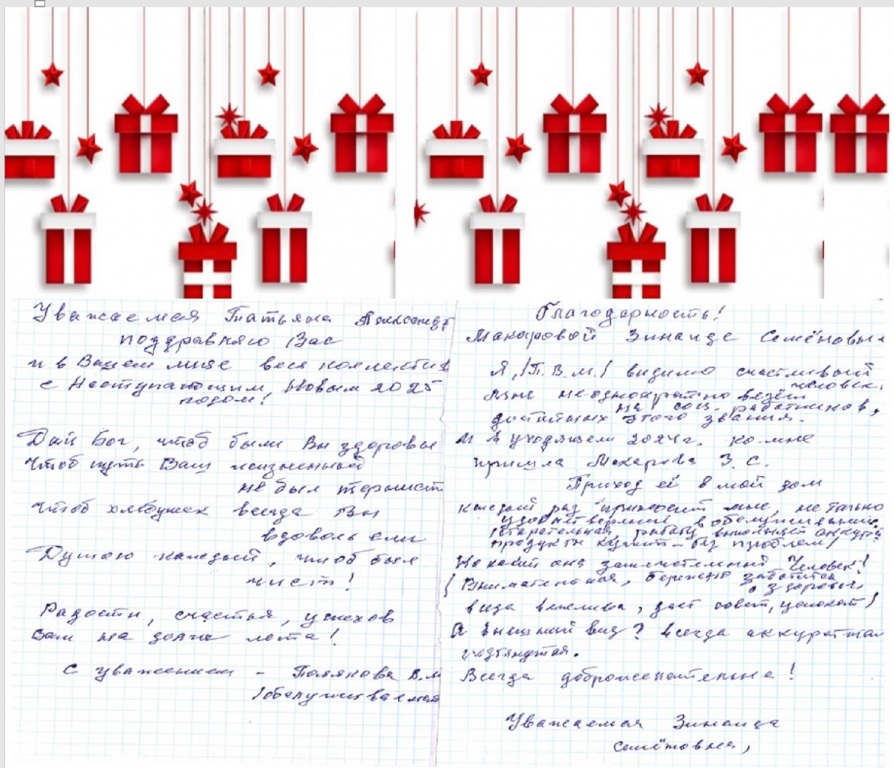 Уважаемая Татьяна Александр
поздравляю Вас
и в Вашем лице весь коллектив
с Наступающим Новым 2025
годом!
Дай Бог, чтоб были Вы здоровы
Чтоб путь Ваш жизненный
не был тернист
Чтоб хлебушек всегда Вы
вдоволь ели
Душою каждый, чтоб был
чист!
Радости, счастья, успехов
Вам на долгие лета!
С уважением - Полякова В.М
/обслуживаемая
Благодарность!
Макаровой Зинаиде Семёновы
Я, /П.В.М./ видимо счастливый
человек.
Мне неоднократно везёт
на соц. работников,
достойных этого звания.
И в уходящем 2024г. ко мне
пришла Макарова З.С.
Приход её в мой дом
каждый раз приносит мне, не только
удовлетворение в обслуживании
продукты купит - без проблем/
Но какой она замечательный Человек!
/Внимательная, бережно заботится
о здоровье,
вежлива, даст совет, успокоит/
А внешний вид? всегда аккуратная
подтянутая.
Всегда доброжелательна!
Уважаемая Зинаида
Семёновна,